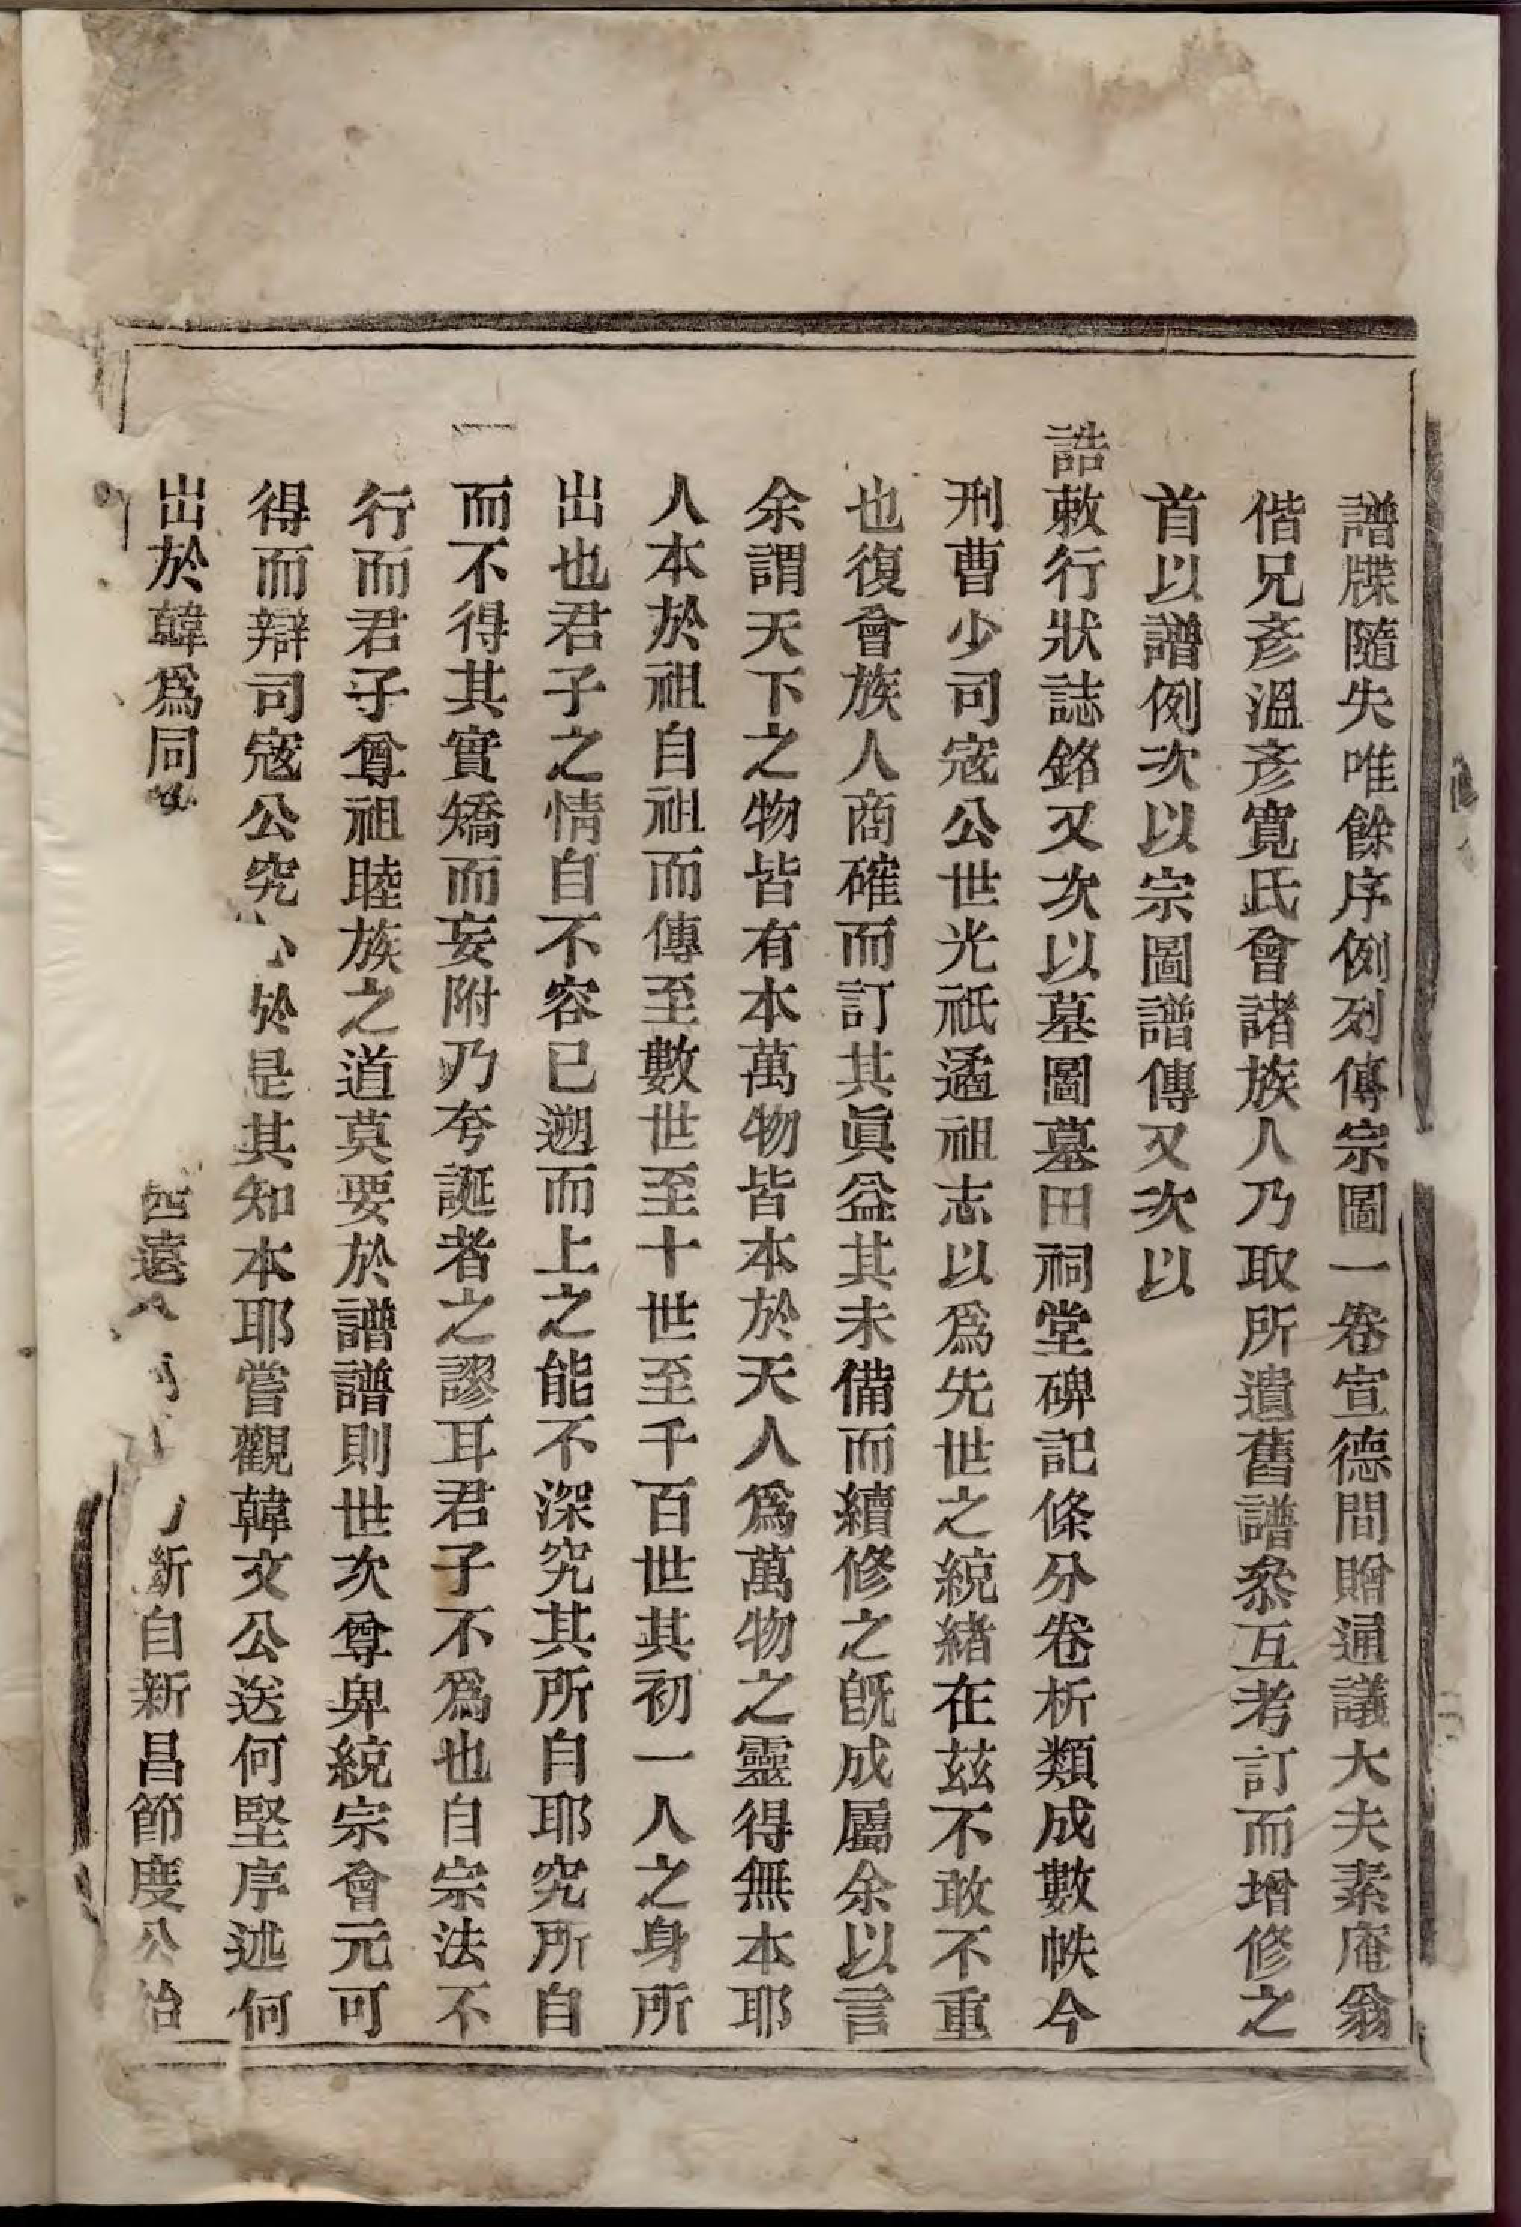 譜牒隨失唯餘序例列傳宗圖一卷宣德間贈通議大夫素庵翁
偕兄彥溫彥寬氏會諸族人乃取所遺舊譜叅互考訂而增修之
首以譜例次以宗圖譜傳又次以
誥敕行狀誌銘又次以墓圖墓田祠堂碑記條分卷析類成數帙今
刑曹少司寇公世光祇遹祖志以爲先世之統緒在茲不敢不重
也復會族人商確而訂其眞益其未備而續修之旣成屬余以言
余謂天下之物皆有本萬物皆本於天人爲萬物之靈得無本耶
人本於祖自祖而傳至數世至十世至千百世其初一人之身所
出也君子之情自不容已遡而上之能不深究其所自耶究所自
而不得其實矯而妄附乃夸誕者之謬耳君子不爲也自宗法不
行而君子尊祖睦族之道莫要於譜譜則世次尊卑統宗會元可
得而辯司寇公究於是其知本耶嘗觀韓文公送何堅序述何
出於韓爲同遠新自新昌節度公始